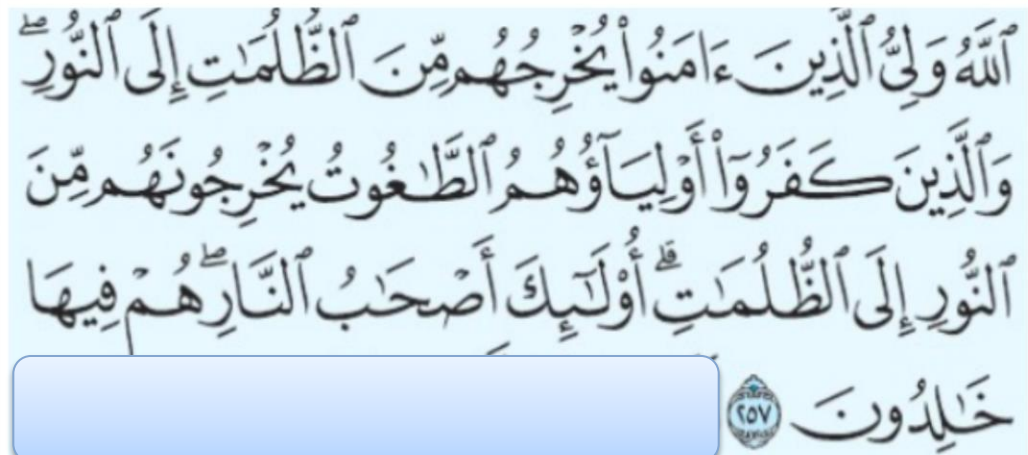 ٱللَّهُ وَلِيُّ ٱلَّذِينَ ءَامَنُوا۟ يُخْرِجُهُم مِّنَ ٱلظُّلُمَـٰتِ إِلَى ٱلنُّورِ ۖ
وَٱلَّذِينَ كَفَرُوٓا۟ أَوْلِيَآؤُهُمُ ٱلطَّـٰغُوتُ يُخْرِجُونَهُم مِّنَ
ٱلنُّورِ إِلَى ٱلظُّلُمَـٰتِ ۗ أُو۟لَـٰٓئِكَ أَصْحَـٰبُ ٱلنَّارِ ۖ هُمْ فِيهَا
خَـٰلِدُونَ ٢٥٧